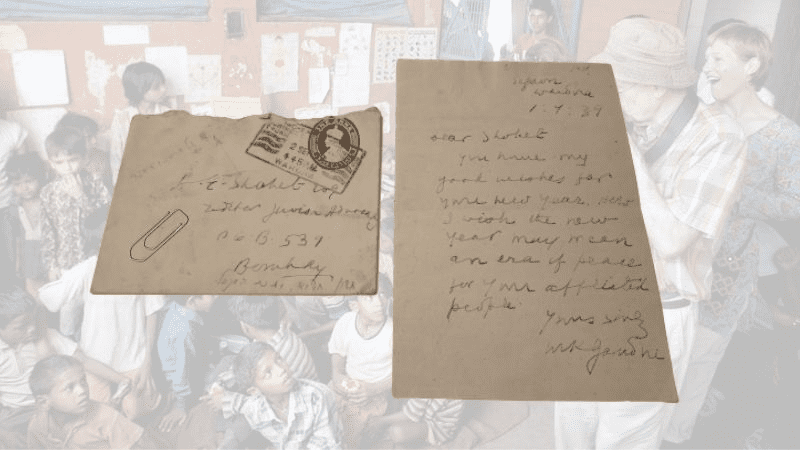 2 SEP
WARDHA
E. Shohet Esq
Editor Jewish Advocate
Bombay
Segaon
Wardha
1.9.39
dear Shohet
You have my
good wishes for
your new year. How
I wish the new
year may mean
an era of peace
for your afflicted
people.
Yours
MK Gandhi